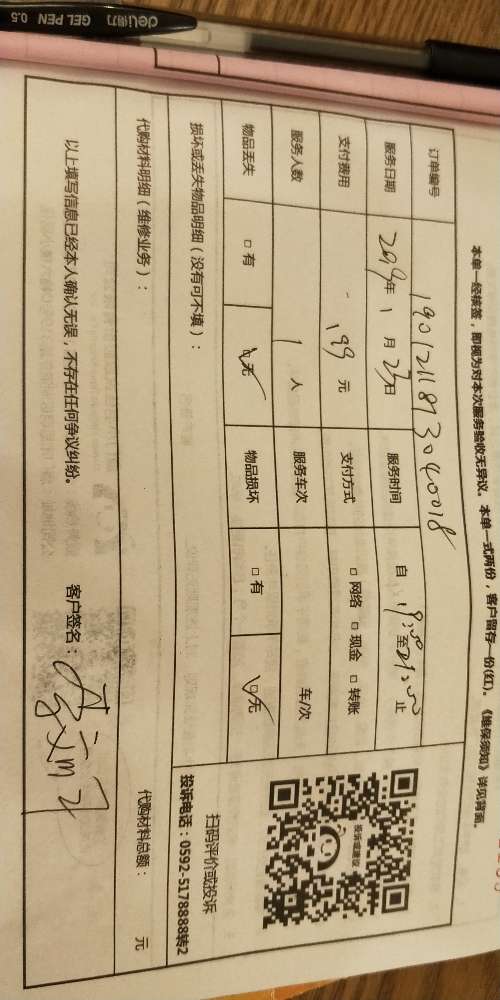 deli得力 GEL PEN 0.5
本单一经核签，即视为对本次服务验收无异议。本单一式两份，客户留存一份(红)。《维保须知》详见背面。
订单编号 1901211813040018
服务日期 2019年 1 月 23日 服务时间 自 19:00 至 21:00 止
支付费用 199 元 支付方式 □ 网络 □ 现金 □ 转账
服务人数 1 人 服务车次 车/次
物品丢失 □ 有 □ 无 物品损坏 □ 有 □ 无
损坏或丢失物品明细（没有可不填）：
投诉或建议
扫码评价或投诉
投诉电话：0592-5178888转2
代购材料明细（维修业务）： 代购材料总额： 元
以上填写信息已经本人确认无误，不存在任何争议纠纷。 客户签名：